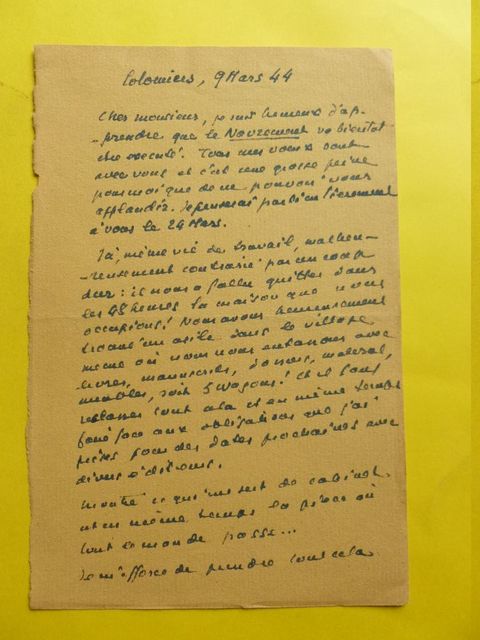 Colomiers, 9 Mars 44
Cher monsieur, je suis heureux d'ap-
-prendre que le Nouzement va bientôt
être exécuté. Tous mes vœux sont
avec vous et c'est une grosse peine
pour moi que de ne pouvoir vous
applaudir. Je penserai particulièrement
à vous le 24 Mars.
Ici, même vie de travail, malheu-
-reusement contrariée par un coup
dur : il nous a fallu quitter dans
les 48 heures la maison que nous
occupions ! Nous avons heureusement
trouvé un asile dans le village
même où nous nous entassons avec
livres, manuscrits, dossiers, matériel,
meubles, soit 5 wagons ! Et il faut
reclasser tout cela et en même temps
faire face aux obligations que j'ai
prises pour des dates prochaines avec
divers éditeurs.
ce qui me sert de cabinet
est en même temps la pièce où
tout le monde passe...
Je m'efforce de prendre tout cela